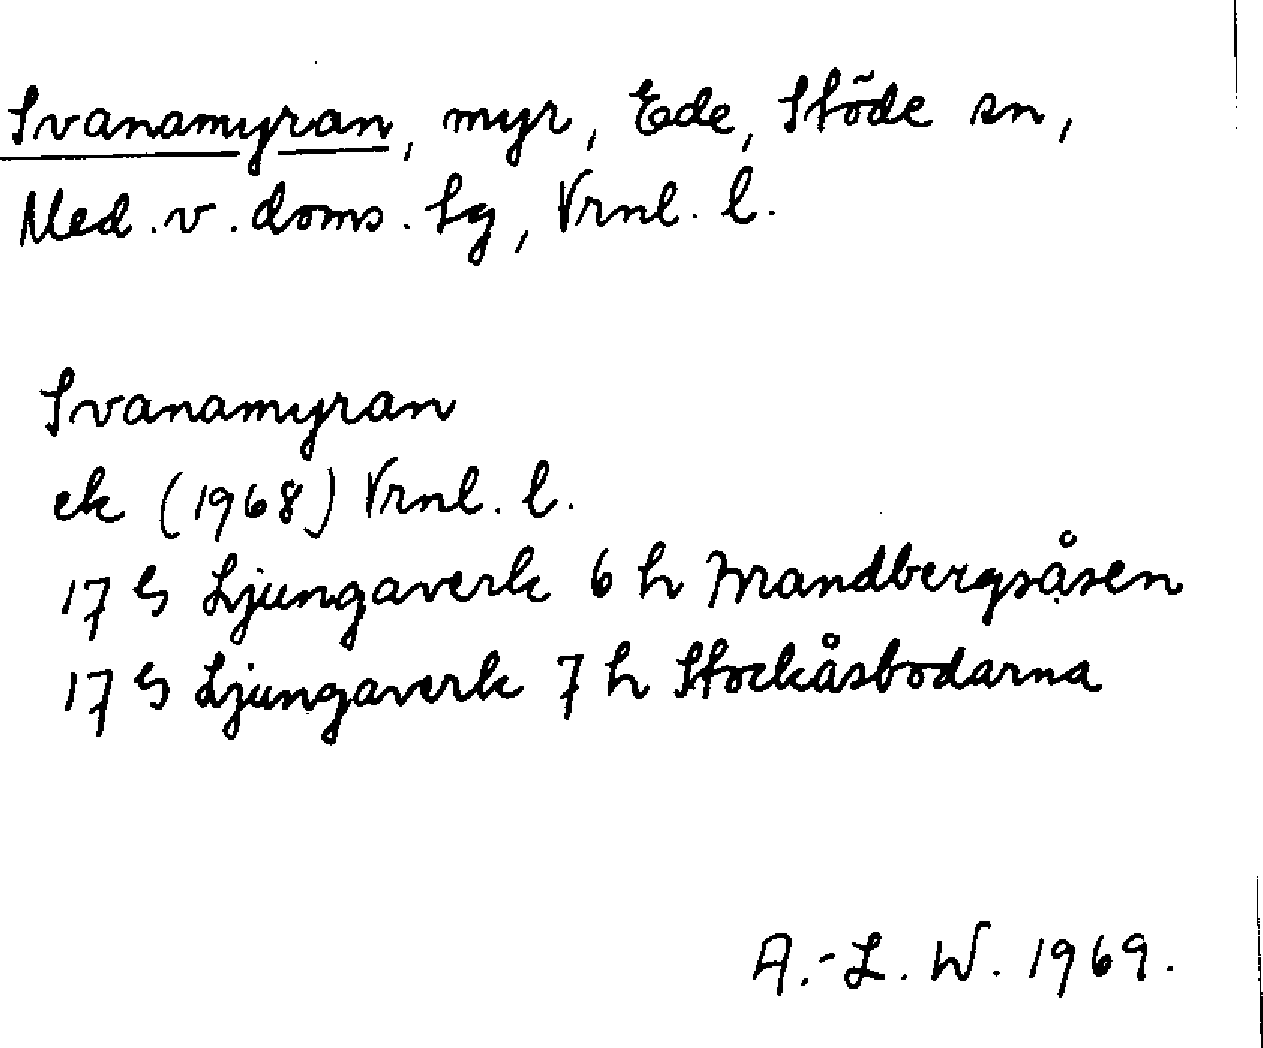 Svanamyran, myr, Ede, Stöde sn,
Med. v. doms. sg, Vrnl. l.
Svanamyran
ek (1968) Vrnl. l.
17 G Ljungaverk 6 h Brandbergsåsen
17 G Ljungaverk 7 h Stockåsbodarna
A.-L. W. 1969.